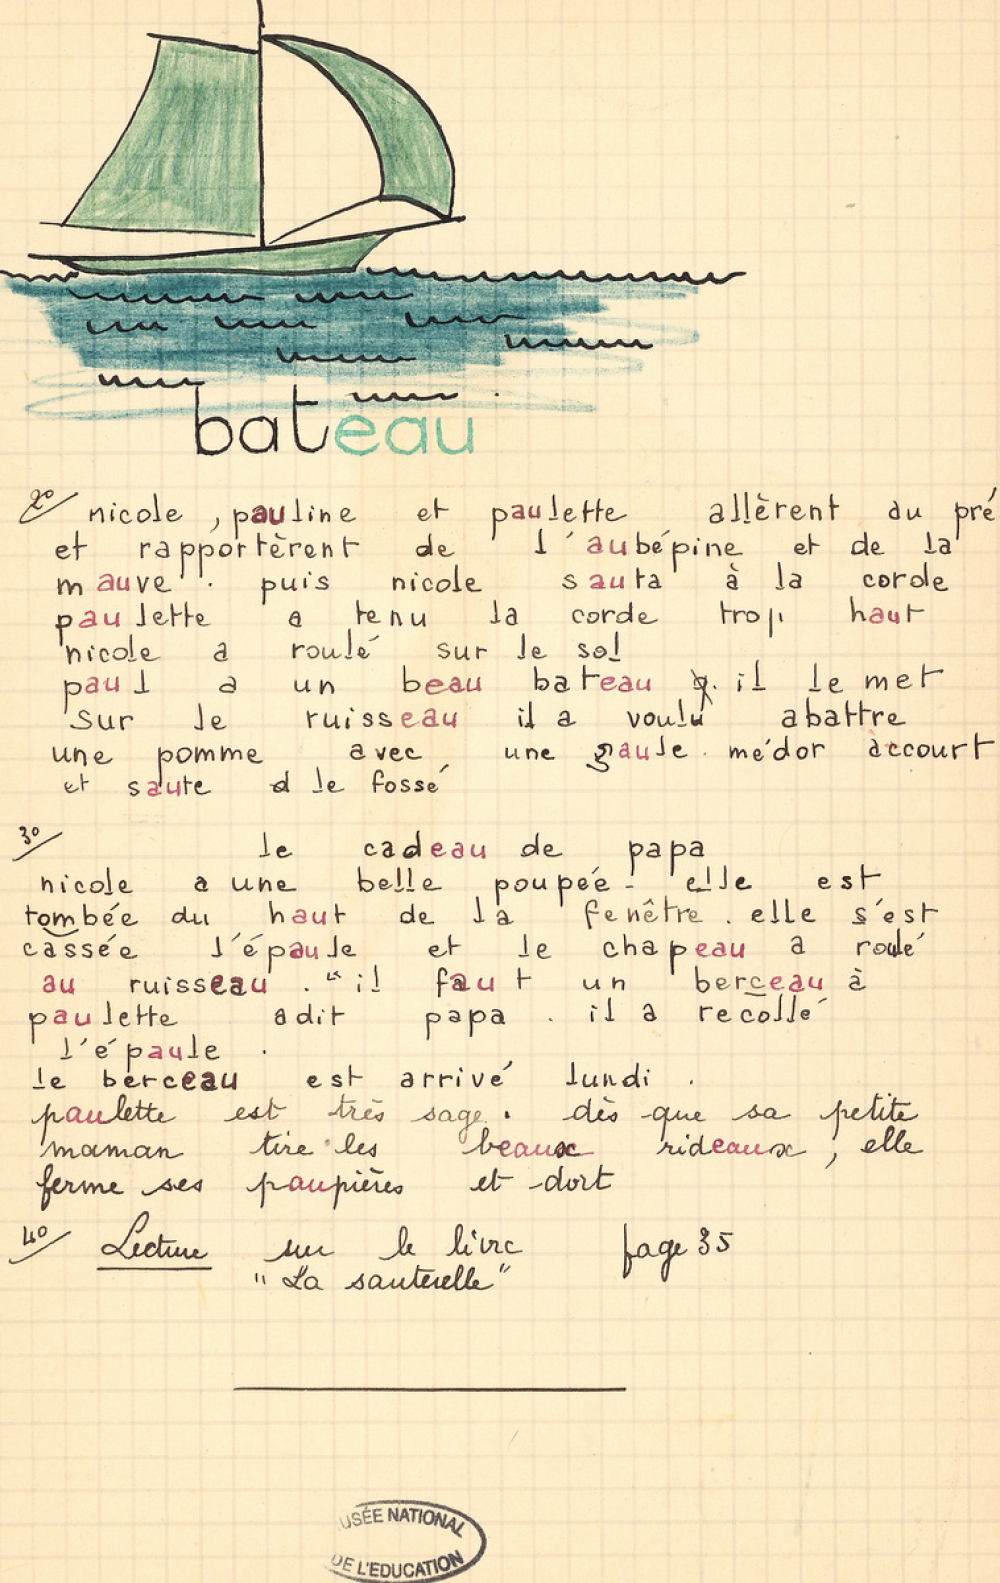 bateau
2° nicole , pauline et paulette allèrent au pré
et rapportèrent de l'aubépine et de la
mauve . puis nicole sauta à la corde
paulette a tenu la corde trop haut
nicole a roulé sur le sol
paul a un beau bateau . il le met
sur le ruisseau il a voulu abattre
une pomme avec une gaule . médor accourt
et saute d le fossé
3° le cadeau de papa
nicole a une belle poupée - elle est
tombée du haut de la fenêtre . elle s'est
cassée l'épaule et le chapeau a roulé
au ruisseau . " il faut un berceau à
paulette a dit papa . il a recollé
l'épaule .
le berceau est arrivé lundi .
paulette est très sage . dès que sa petite
maman tire les beaux rideaux , elle
ferme ses paupières et dort
4° Lecture sur le livre page 35
" La sauterelle "
USÉE NATIONAL
DE L'EDUCATION